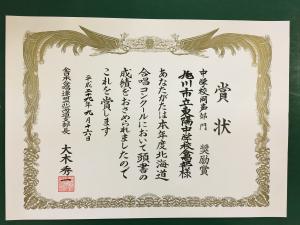 賞状
中学校同声部門 奨励賞
旭川市立東陽中学校合唱部様
あなたがたは本年度北海道
合唱コンクールにおいて頭書の
成績をおさめられましたので
これを賞します
平成二十九年九月十六日
全日本合唱連盟北海道支部長
大木秀一